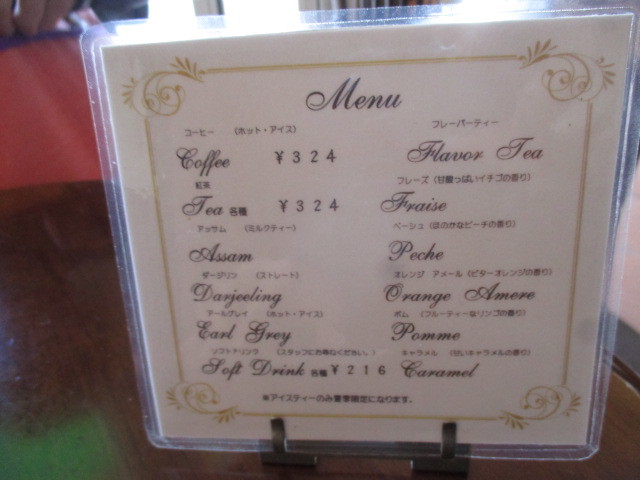 Menu
コーヒー (ホット・アイス)
Coffee ¥324
紅茶
Tea 各種 ¥324
アッサム (ミルクティー)
Assam
ダージリン (ストレート)
Darjeeling
アールグレイ (ホット・アイス)
Earl Grey
ソフトドリンク (スタッフにお尋ねください。)
Soft Drink 各種 ¥216
フレーバーティー
Flavor Tea
フレーズ (甘酸っぱいイチゴの香り)
Fraise
ペーシュ (ほのかなピーチの香り)
Peche
オレンジ アメール (ビターオレンジの香り)
Orange Amere
ポム (フルーティーなリンゴの香り)
Pomme
キャラメル (甘いキャラメルの香り)
Caramel
※アイスティーのみ夏季限定になります。